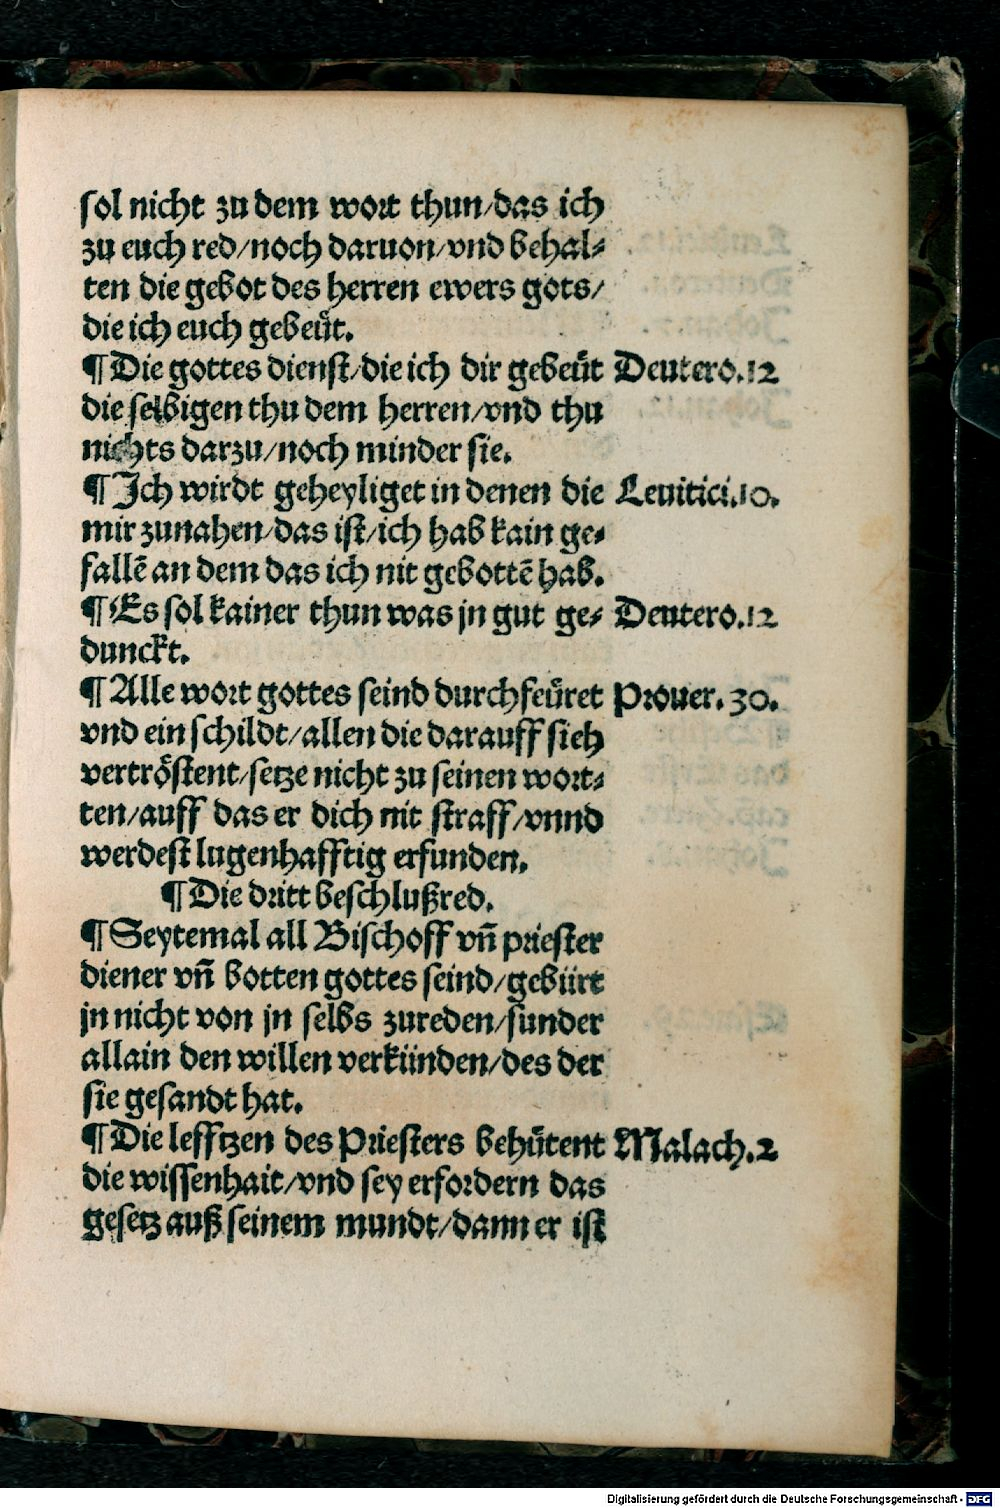 sol nicht zu dem wort thun/das ich
zu euch red/noch daruon/vnd behal⸗
ten die gebot des herren ewers gots/
die ich euch gebeüt.
¶ Die gottes dienst/die ich dir gebeüt Deutero.12
die selbigen thu dem herren/vnd thu
nichts darzu/noch minder sie.
¶ Ich wirdt geheyliget in denen die Leuitici.10.
mir zunahen/das ist/ich hab kain ge⸗
fallē an dem das ich nit gebottē hab.
¶ Es sol kainer thun was jn gut ge⸗ Deutero.12
dunckt.
¶ Alle wort gottes seind durchfeüret Prouer. 30.
vnd ein schildt/allen die darauff sich
vertröstent/setze nicht zu seinen wort⸗
ten/auff das er dich nit straff/vnnd
werdest lugenhafftig erfunden.
¶ Die dritt beschlußred.
¶ Seytemal all Bischoff vñ priester
diener vñ botten gottes seind/gebürt
jn nicht von jn selbs zureden/sunder
allain den willen verkünden/des der
sie gesandt hat.
¶ Die lefftzen des Priesters behütent Malach.2
die wissenhait/vnd sey erfordern das
gesetz auß seinem mundt/dann er ist
Digitalisierung gefördert durch die Deutsche Forschungsgemeinschaft - DFG